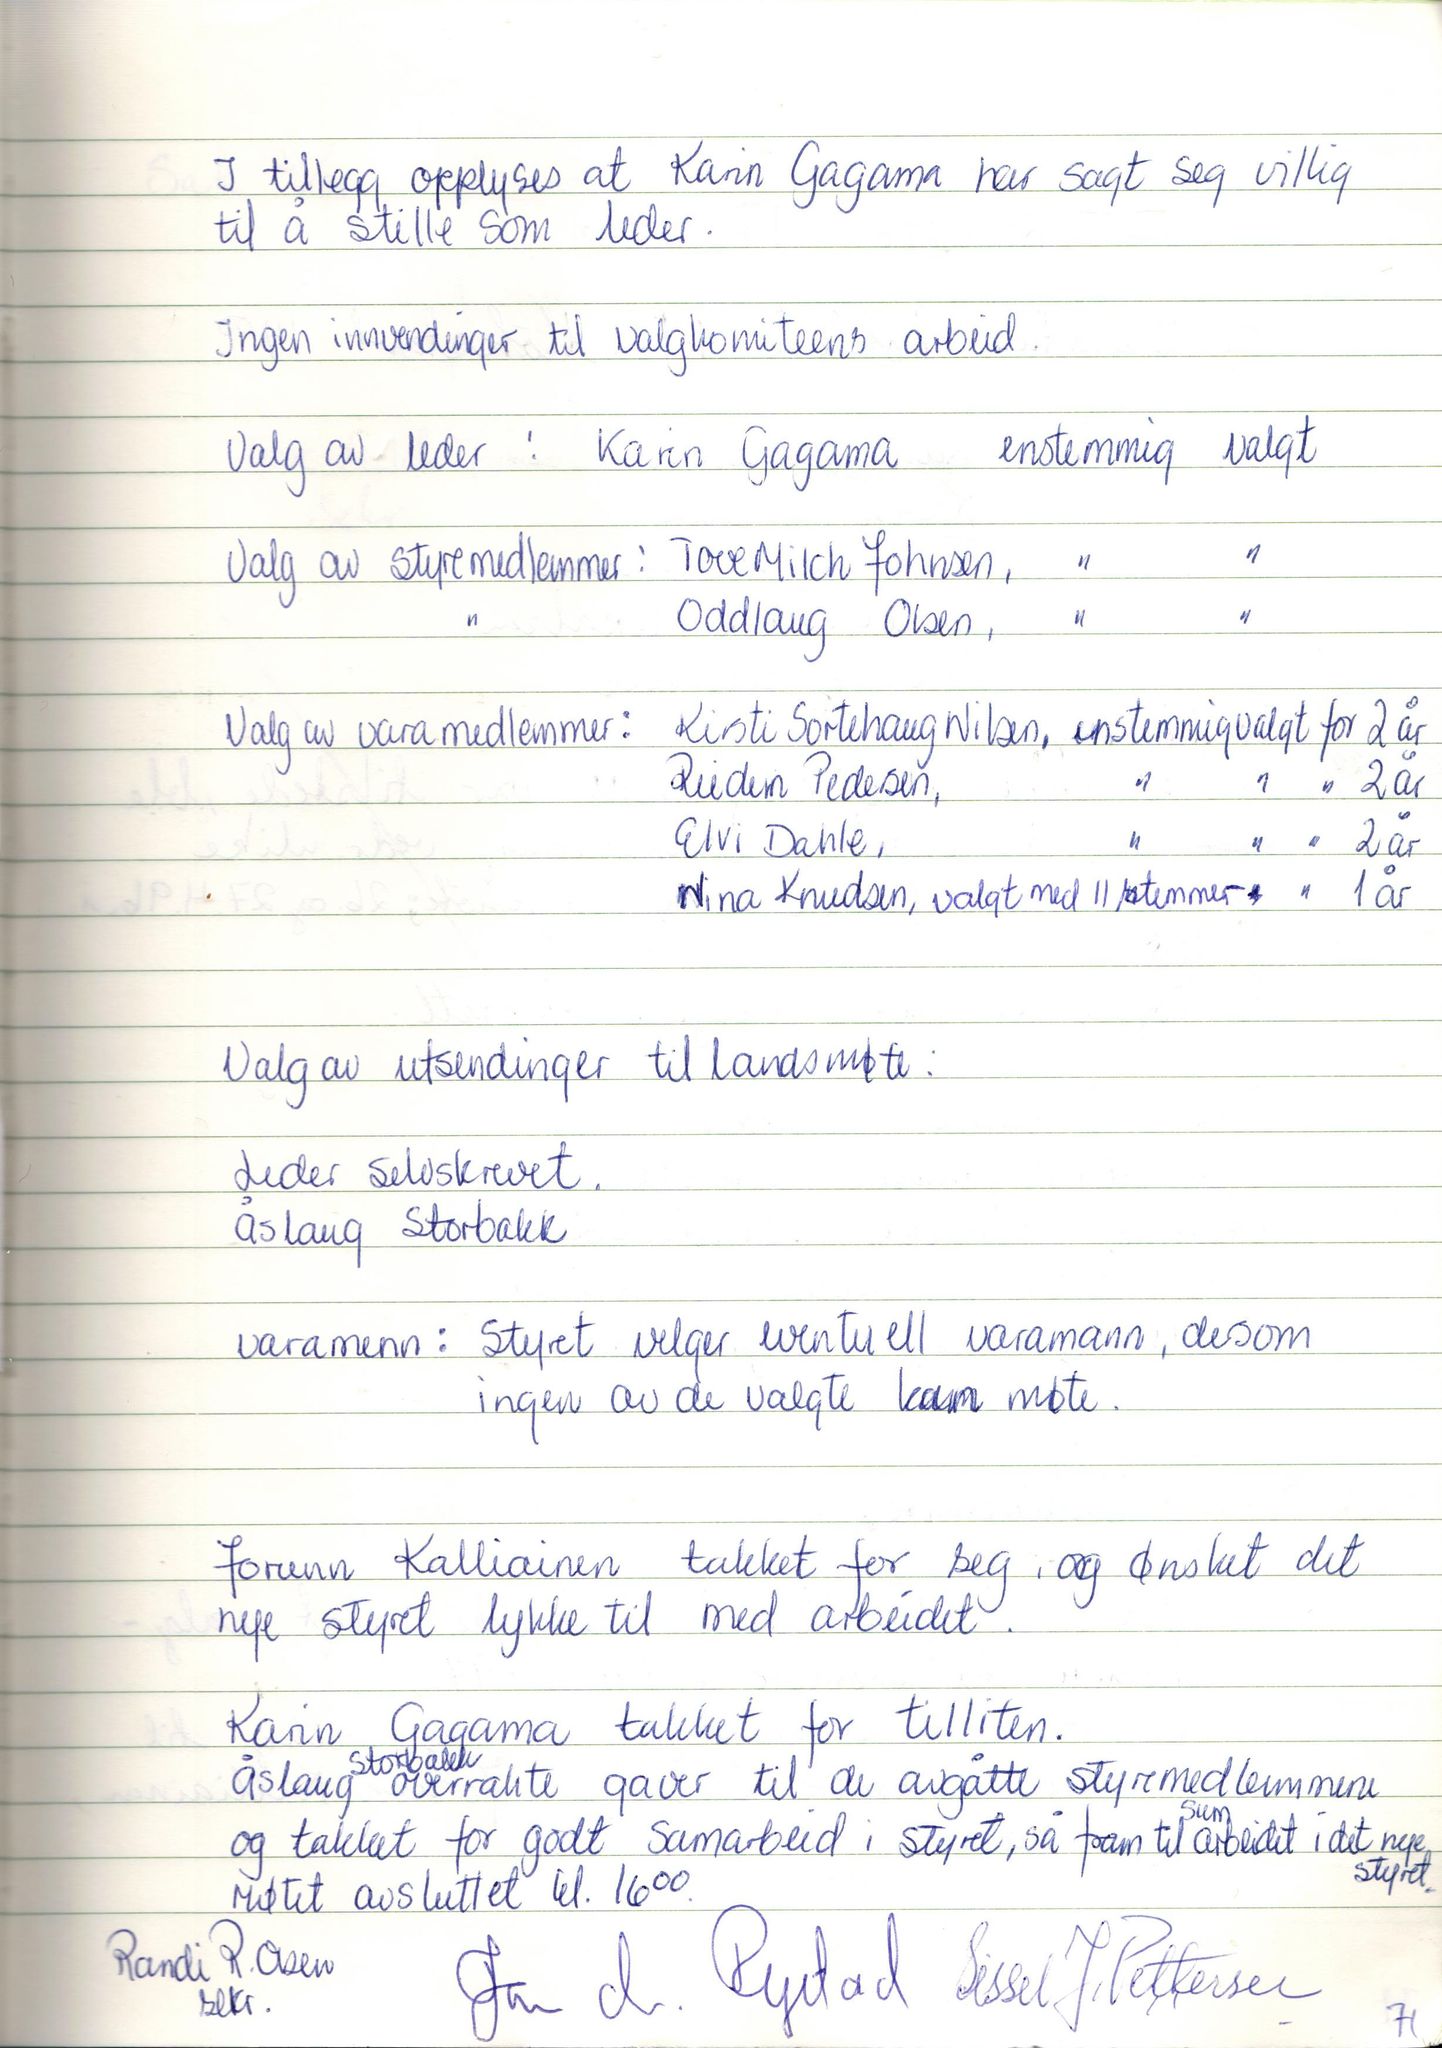 I tillegg opplyses at Karin Gagama har sagt seg villig
til å stille som leder.
Ingen innvendinger til valgkomiteens arbeid.
Valg av leder : Karin Gagama enstemmig valgt
Valg av styremedlemmer : Tove Milch Johnsen, " "
" Oddlaug Olsen, " "
Valg av varamedlemmer : Kirsti Sortehaug Nilsen, enstemmig valgt for 2 år
Pedersen, " " " 2 år
Elvi Dahle, " " " 2 år
Nina Knudsen, valgt med 11 stemmer " 1 år
Valg av utsendinger til landsmøte :
Leder selvskrevet.
Åslaug Storbakk
varamenn : Styret velger eventuell varamann, desom
ingen av de valgte kan møte.
Jorunn Kalliainen takket for seg, og ønsket det
nye styret lykke til med arbeidet.
Karin Gagama takket for tilliten.
Åslaug Storbakk overrakte gaver til de avgåtte styremedlemmene
og takket for godt samarbeid i styret, så fram til samarbeidet i det nye
styret.
Møtet avsluttet kl. 16 00.
Randi R. Olsen
sekr.
Rystad Sissel J. Pettersen
71